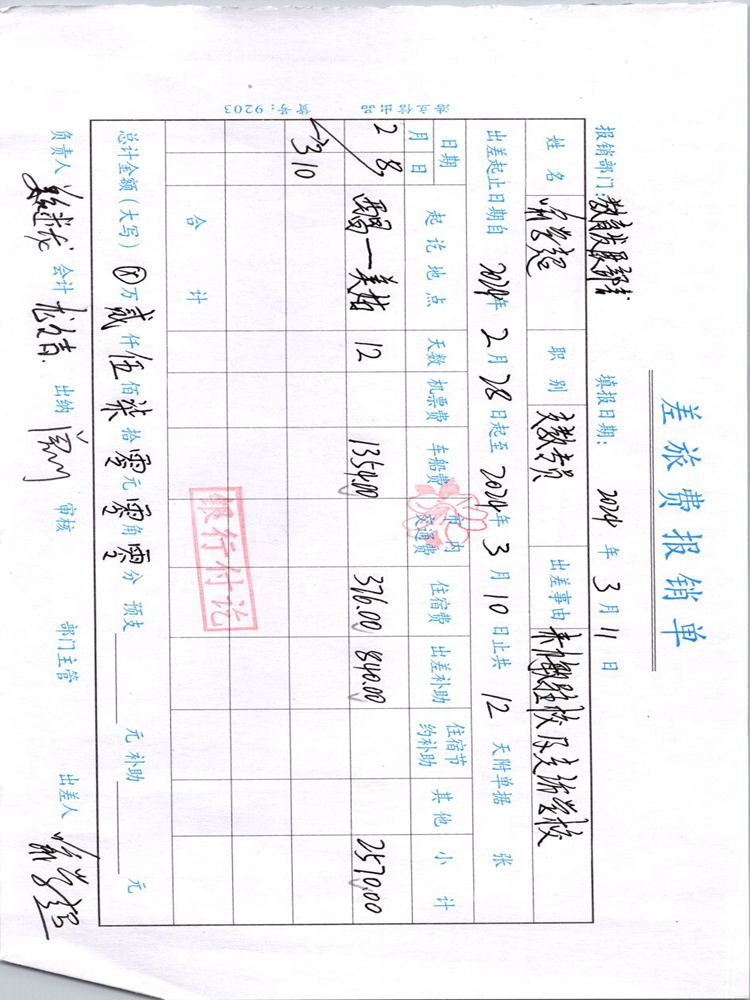 差旅费报销单
报销部门:教育发展部 填报日期: 2024 年 3 月 11 日
姓名 职别 支教专员 出差事由
出差起止日期自 2024 年 2 月 28 日起至 2024 年 3 月 10 日止共 12 天附单据 张
日期 起讫地点 天数 机票费 车船费 市内交通费 住宿费 出差补助 住宿节约补助 其他 小计
月 日
2 8 西昌—美姑 12 1354.00 376.00 840.00 2570.00
3 10
合计
银行付讫
总计金额(大写) ⊗万 贰 仟 伍 佰 柒 拾 零 元 零 角 零 分 预支 元 补助 元
负责人 会计 出纳 审核 部门主管 出差人
浩立信出品 货号:9203